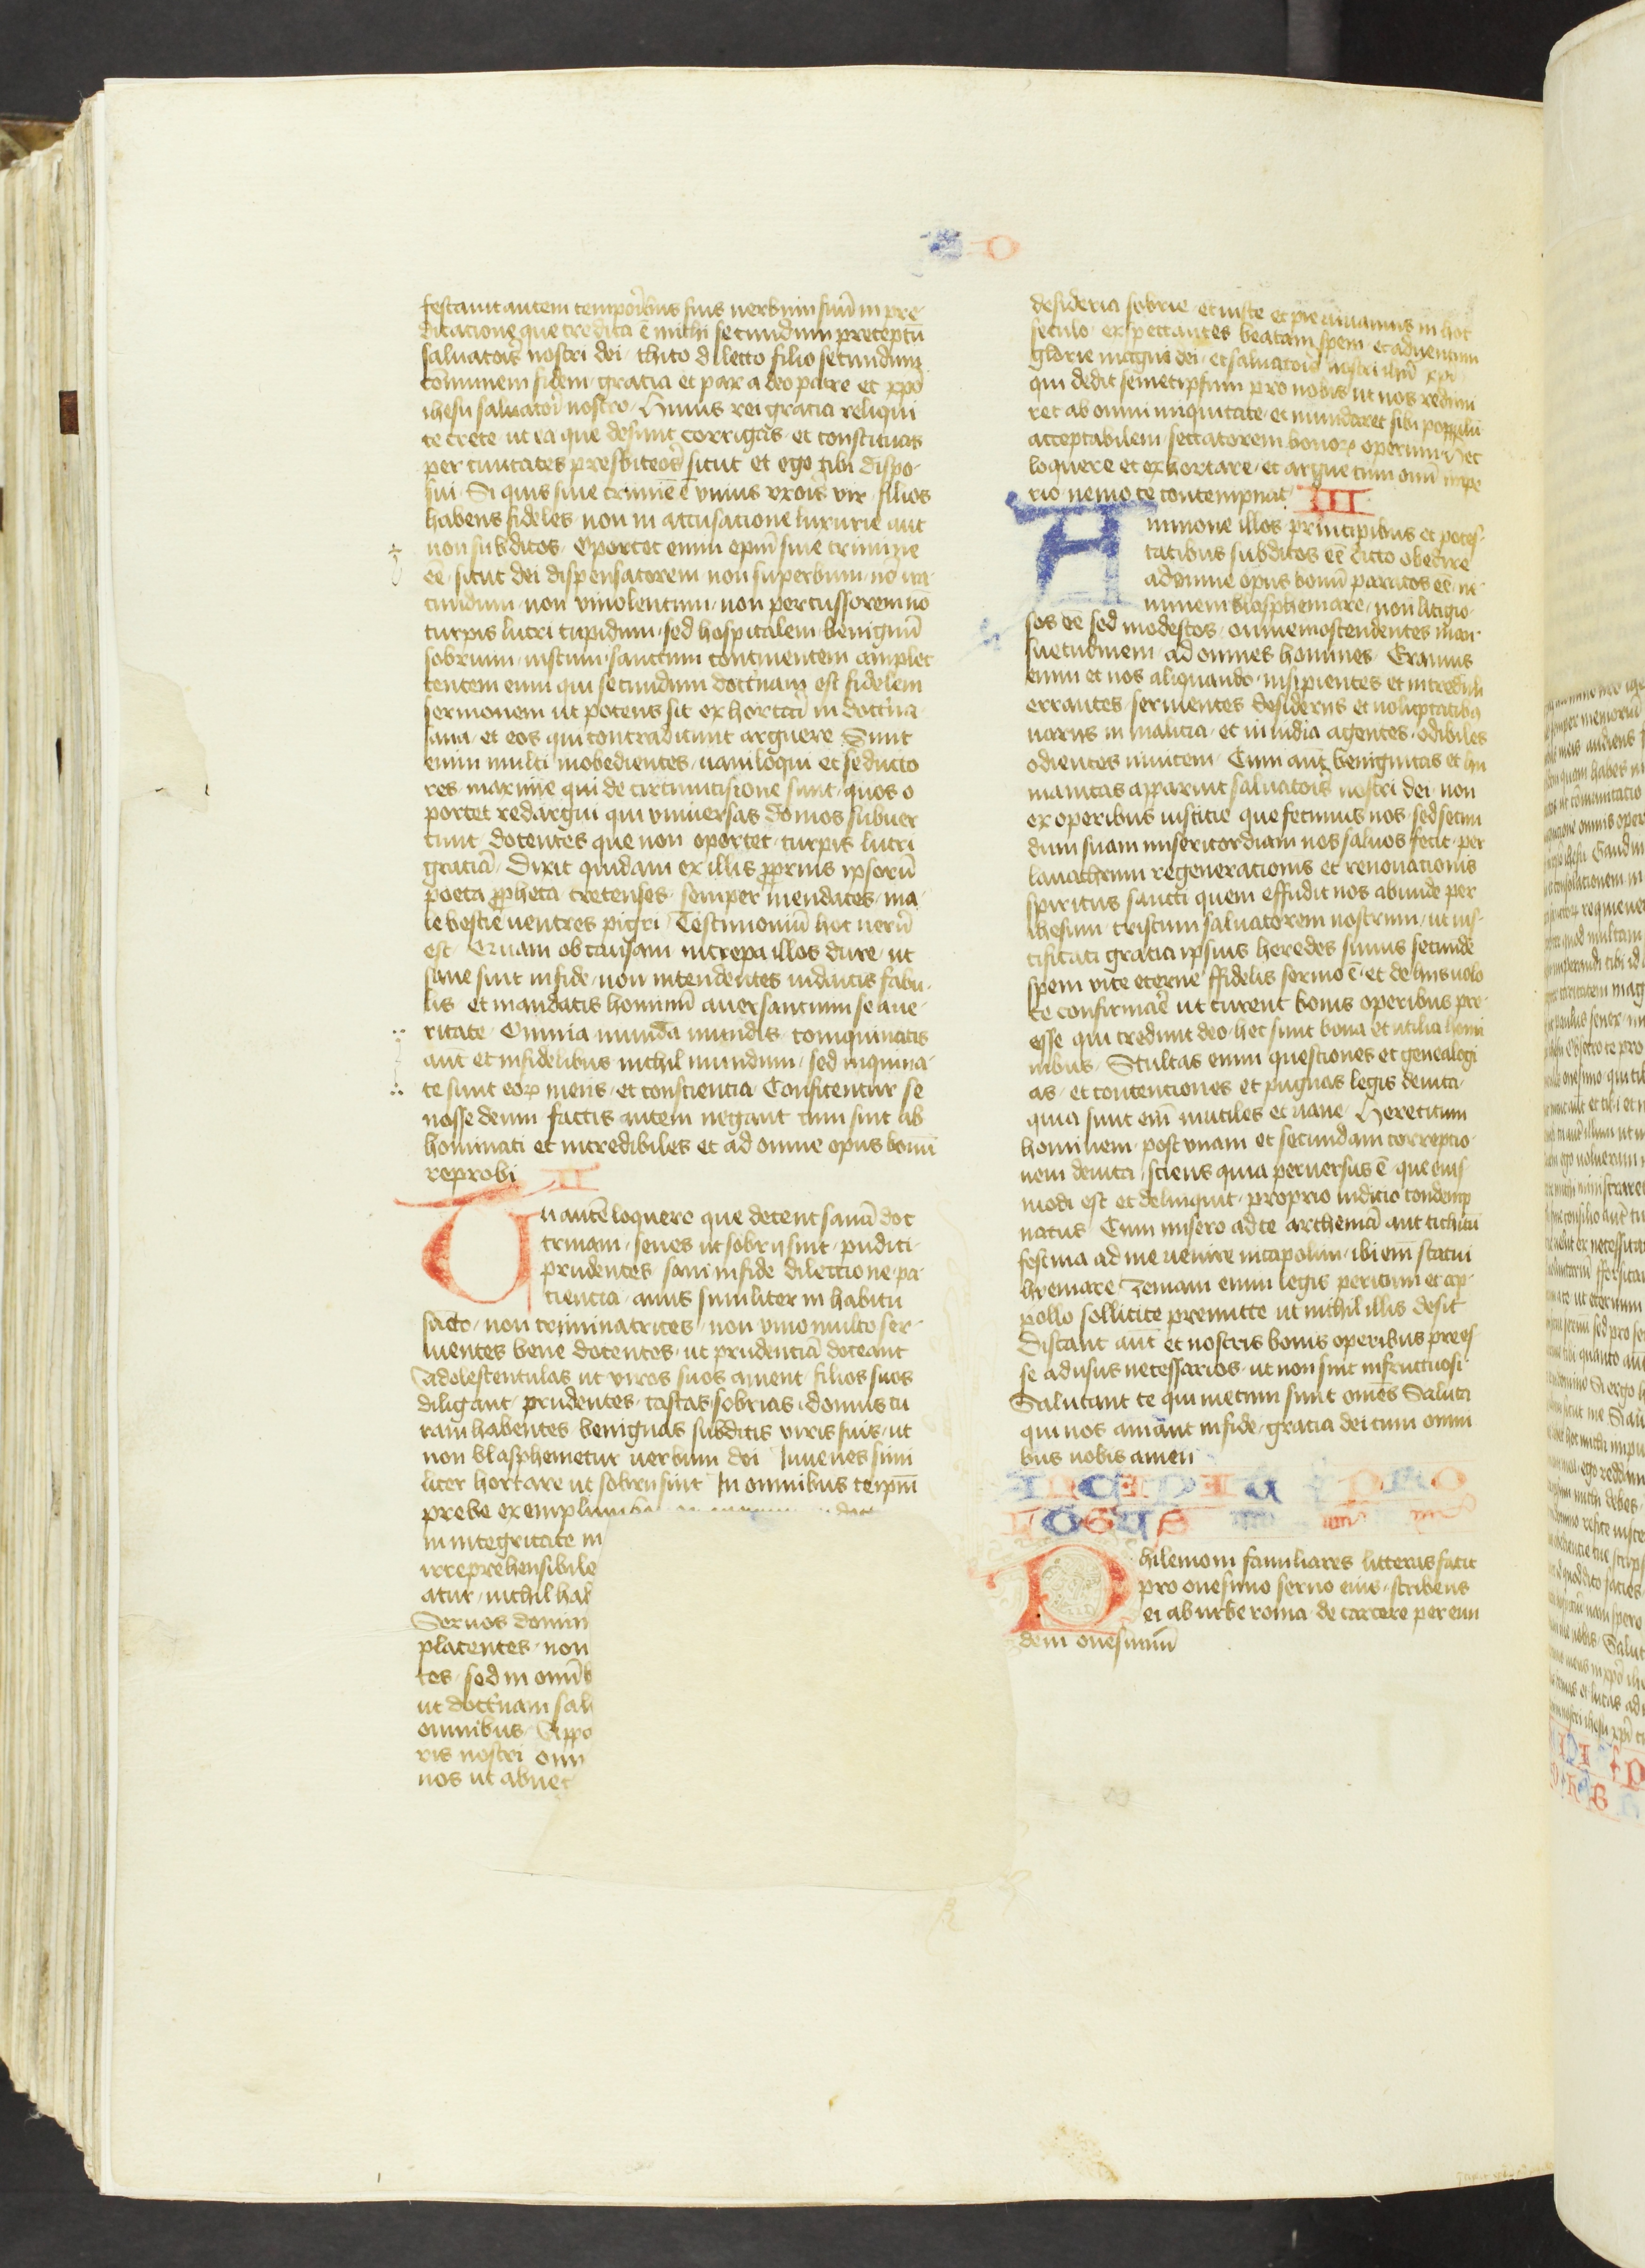 festauit autem temporibus suis uerbum suū in pre-
dicacione que credita ē michi secundum preceptū
saluatoris nostri dei · thito dilecto filio secundum
cōmunem fidem · gracia et pax a deo patre et xpō
ihesu saluatore nostro · Huius rei gracia reliqui
te crete ut ea que desunt corrigas · et constituas
per ciuitates presbiteros sicut et ego tibi dispo-
sui · Si quis sine crimīe ē vnius vxoris vir · filios
habens fideles · non in accusacione luxurie aut
non subditos · Oportet enim epm̄ sine crimine
eē · sicut dei dispensatorem non superbum · nō ira-
cundum · non vinolentum · non percussorem nō
turpis lucri cupidum · sed hospitalem benignū
sobrium · iustum · sanctum continentem amplec
tentem eum qui secundum doctrinam est fidelem
sermonem ut potens sit exhortari in doctrina
sana · et eos qui contradicunt arguere Sunt
enim multi inobedientes · uaniloqui et seducto
res · maxime qui de circumcisione sunt · quos o
portet redargui qui vniuersas domos subuer
tunt docentes que non oportet · turpis lucri
graciā · Dixit quidam ex illis proprius ipsorū
poeta propheta cretenses · semper mendaces · ma
le bestie uentres pigri · Testimoniū hoc uerū
est · Quam ob causam increpa illos dure · ut
sane sint in fide · non intendentes iudaicis fabu-
lis et mandatis hominū auersancium se a ue-
ritate · Omnia munda mundis · coinquinatis
aut et infidelibus nichil mundum · sed inquina-
te sunt eorꝝ mens · et consciencia Confitentur se
nosse deum factis autem negant cum sint ab
hominati et incredibiles et ad omne opus bonū
reprobi II
Tu autē loquere que decent sanā doc
trinam · senes ut sobrij sint · pudici ·
prudentes sani in fide dilectione · pa-
ciencia · anus similiter in habitu
sācto · non criminatrices · non vino multo ser-
uientes bene docentes · ut prudenciā doceant
Adolescentulas ut viros suos ament filios suos
diligant · prudentes · castas sobrias · domus cu
ram habentes benignas subditis viris suis · ut
non blasphemetur uerbum dei Iuuenes simi
liter hortare ut sobrij sint In omnibus teipm̄
prebe exemplum
in integritate in
irreprehensibile
atur · nichil hab
Seruos domin
placentes · non
tes · sed in omīb
ut doctrinam salu
omnibus · Appa
ris nostri omn
nos ut abneg
desideria sobrie · et iuste et pie uiuamus in hoc
seculo · expectantes beatam spem · et aduentum
glorie magni dei · et saluatoris nostri ihū xpī
qui dedit semetipsum pro nobis ut nos redimi
ret ab omni iniquitate · et mundaret sibi populū
acceptabilem · sectatorem bonorꝝ operum Hec
loquere et exhortare · et argue cum omī impe
rio nemo te contempnat III
Ammone illos principibus et potes-
tatibus subditos eē dicto obedire
ad omne opus bonū paratos eē · ne-
minem blasphemare · non litigio-
sos eē sed modestos · omnem ostendentes man-
suetudinem ad omnes homines · Eramus
enim et nos aliquando · insipientes et increduli
errantes · seruientes desiderijs et uoluptatibꝯ
uarijs in malicia · et inuidia agentes · odibiles
odientes inuicem · Cum aūt benignitas et hu
manitas apparuit saluatoris nostri dei · non
ex operibus iusticie que fecimus nos · sed secun
dum suam misericordiam nos saluos fecit · per
lauachrum regeneracionis et renouacionis
spiritus sancti quem effudit nos abunde per
ihesum cristum saluatorem nostrum · ut ius-
tificati gratia ipsius heredes simus secunde
spem vite eterne ffidelis sermo ē · et de hijs uolo
te confirmare ut curent bonis operibus pre-
esse qui credunt deo · hec sunt bona et utilia homi
nibus · Stultas enim questiones et genealogi
as · et contenciones et pugnas legis deuita ·
quia sunt enī inutiles et uane · Hereticum
hominem post vnam et secundam correptio
nem deuita · sciens quia peruersus ē que eius
modi est et delinquit · proprio iudicio condemp
natus Cum misero ad te arthemā aut tichicū
festina ad me uenire nicapolim · ibi enī statui
hyemare Zenam enim legis peritum et ap-
pollo sollicite premitte ut nichil illis desit
Discant aūt et nostris bonis operibus prees
se ad usus necessarios · ut non sint infructuosi
Salutant te qui mecum sunt omēs Saluta
qui nos amant in fide · gracia dei cum omni
bus uobis amen
INCIPIT PRO
LOGUS
Philemoni familiares litteras facit
pro onesimo seruo eius · scribens
ei ab urbe roma · de carcere per eun
dem onesimum